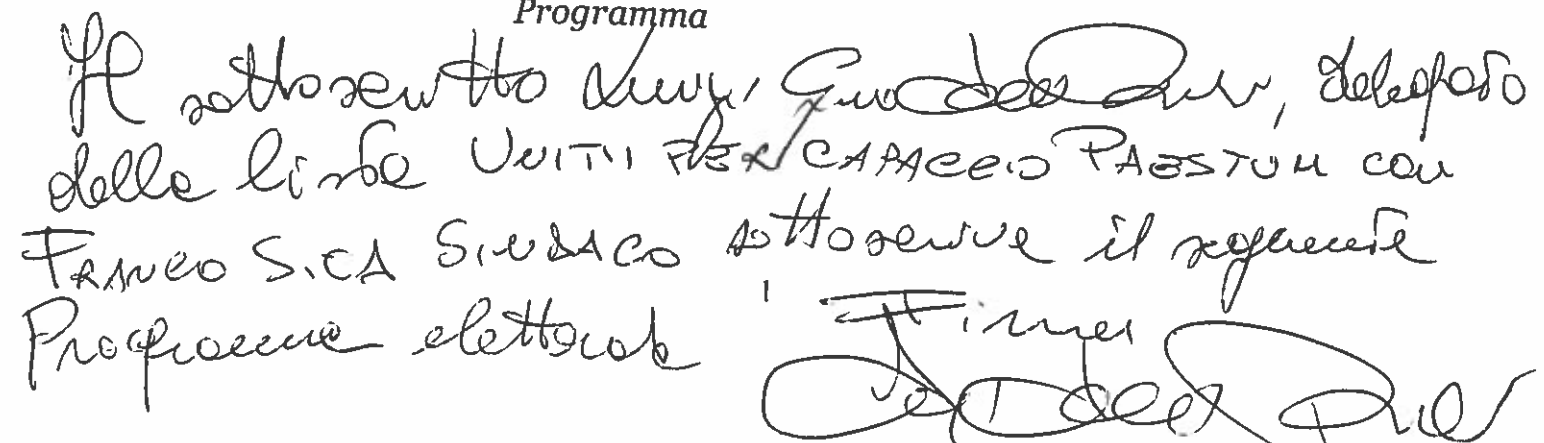 Programma
Il sottoscritto Luigi, delegato
della lista UNITI PER CAPACCIO PAESTUM con
FRANCO SICA SINDACO sottoscrive il seguente
Programma elettorale Firma